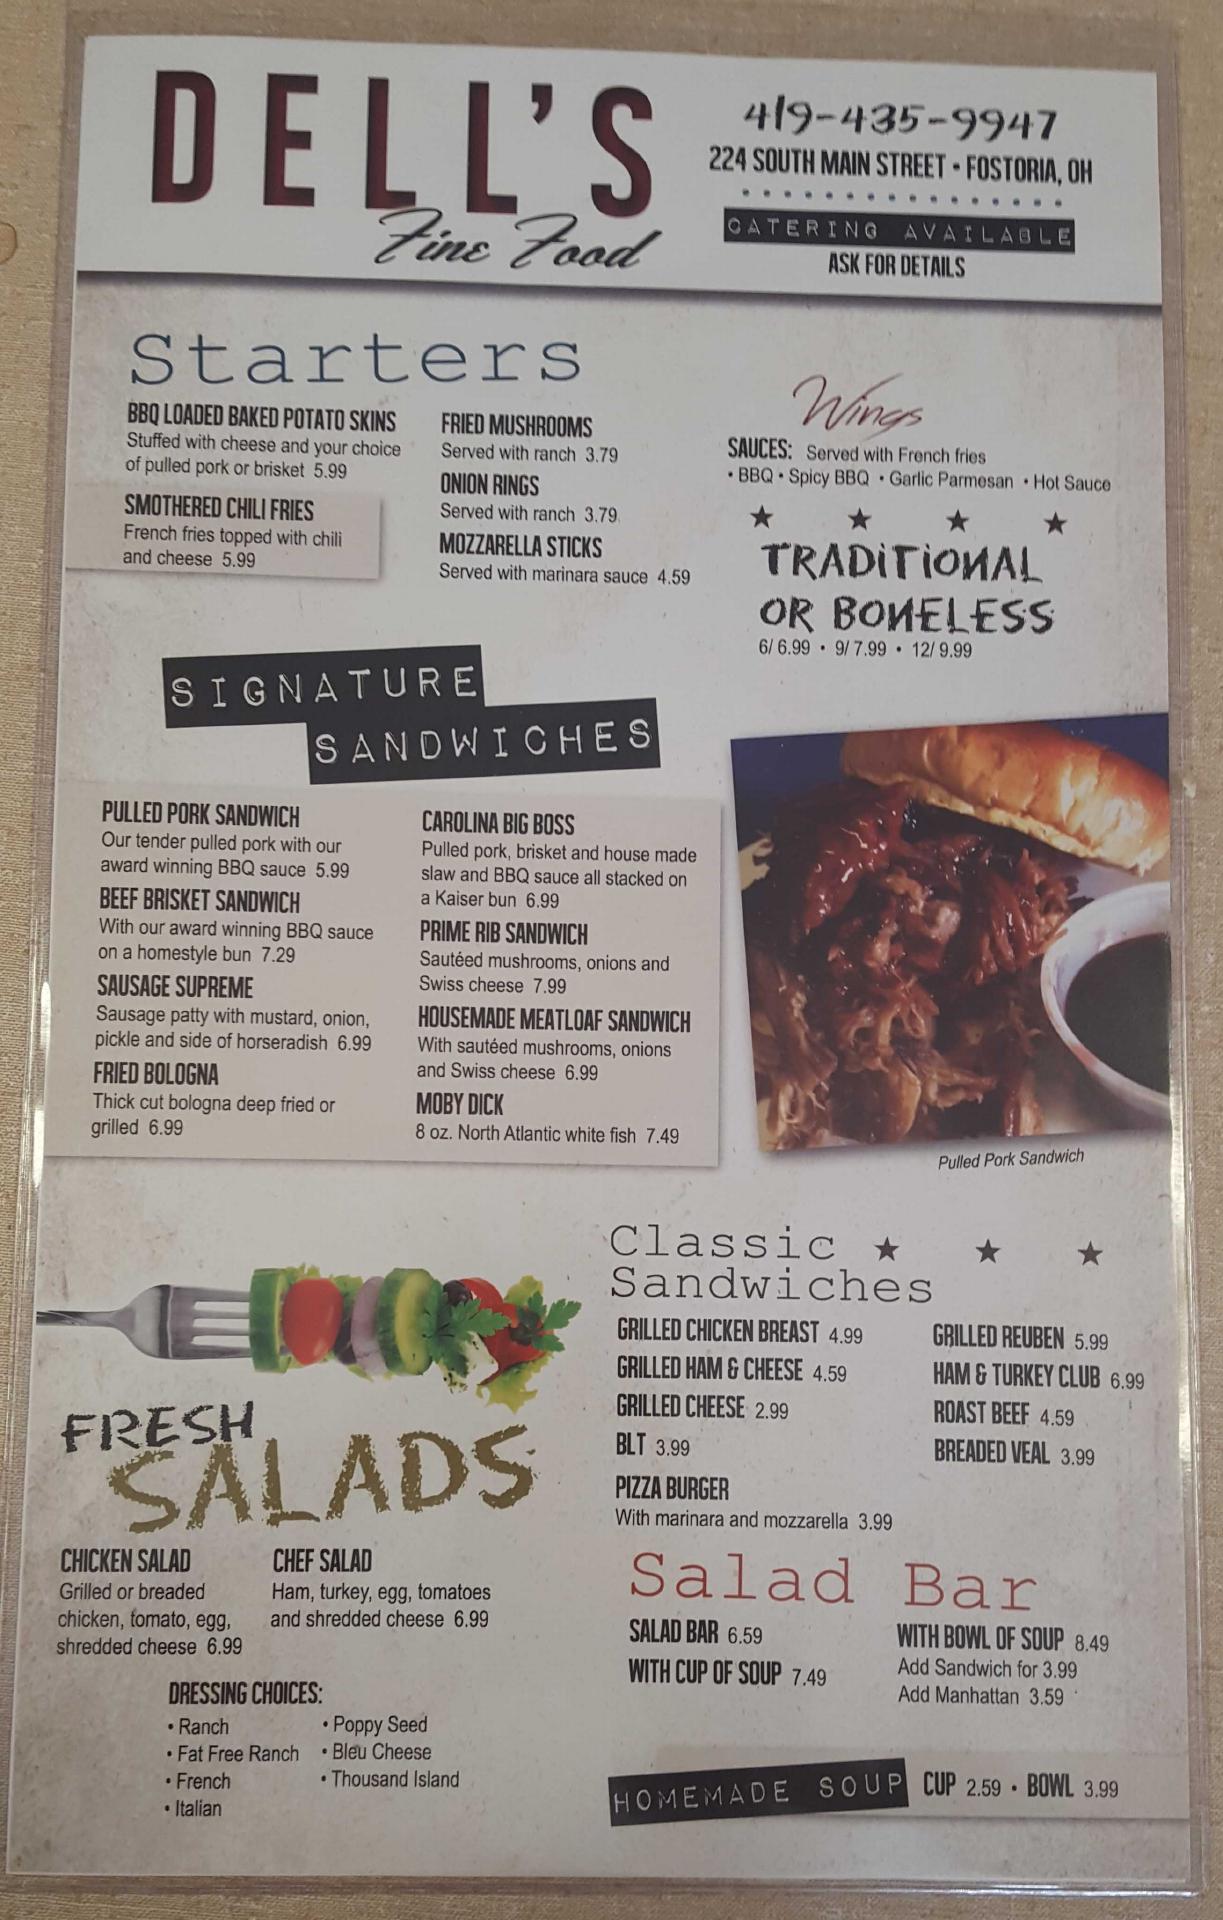 DELL'S
Fine Food
419-435-9947
224 SOUTH MAIN STREET • FOSTORIA, OH
CATERING AVAILABLE
ASK FOR DETAILS
Starters
BBQ LOADED BAKED POTATO SKINS
Stuffed with cheese and your choice
of pulled pork or brisket 5.99
SMOTHERED CHILI FRIES
French fries topped with chili
and cheese 5.99
FRIED MUSHROOMS
Served with ranch 3.79
ONION RINGS
Served with ranch 3.79
MOZZARELLA STICKS
Served with marinara sauce 4.59
Wings
SAUCES: Served with French fries
• BBQ • Spicy BBQ • Garlic Parmesan • Hot Sauce
TRADITIONAL
OR BONELESS
6/ 6.99 • 9/ 7.99 • 12/ 9.99
SIGNATURE
SANDWICHES
PULLED PORK SANDWICH
Our tender pulled pork with our
award winning BBQ sauce 5.99
BEEF BRISKET SANDWICH
With our award winning BBQ sauce
on a homestyle bun 7.29
SAUSAGE SUPREME
Sausage patty with mustard, onion,
pickle and side of horseradish 6.99
FRIED BOLOGNA
Thick cut bologna deep fried or
grilled 6.99
CAROLINA BIG BOSS
Pulled pork, brisket and house made
slaw and BBQ sauce all stacked on
a Kaiser bun 6.99
PRIME RIB SANDWICH
Sautéed mushrooms, onions and
Swiss cheese 7.99
HOUSEMADE MEATLOAF SANDWICH
With sautéed mushrooms, onions
and Swiss cheese 6.99
MOBY DICK
8 oz. North Atlantic white fish 7.49
Pulled Pork Sandwich
FRESH
SALADS
CHICKEN SALAD
Grilled or breaded
chicken, tomato, egg,
shredded cheese 6.99
CHEF SALAD
Ham, turkey, egg, tomatoes
and shredded cheese 6.99
DRESSING CHOICES:
• Ranch
• Fat Free Ranch
• French
• Italian
• Poppy Seed
• Bleu Cheese
• Thousand Island
Classic
Sandwiches
GRILLED CHICKEN BREAST 4.99
GRILLED HAM & CHEESE 4.59
GRILLED CHEESE 2.99
BLT 3.99
PIZZA BURGER
With marinara and mozzarella 3.99
GRILLED REUBEN 5.99
HAM & TURKEY CLUB 6.99
ROAST BEEF 4.59
BREADED VEAL 3.99
Salad Bar
SALAD BAR 6.59
WITH CUP OF SOUP 7.49
WITH BOWL OF SOUP 8.49
Add Sandwich for 3.99
Add Manhattan 3.59
HOMEMADE SOUP CUP 2.59 • BOWL 3.99